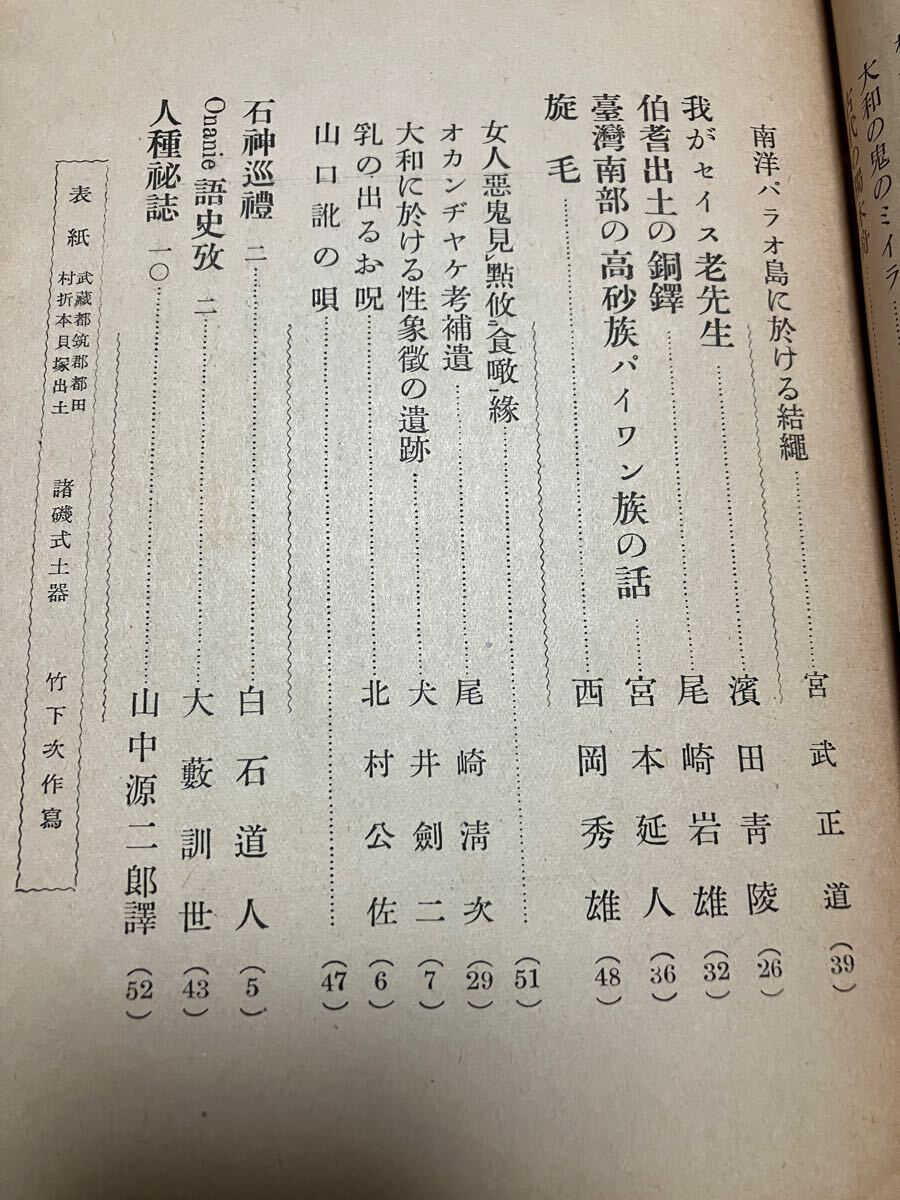 大和の鬼のミイラ
南洋パラオ島に於ける結繩 宮武正道 (39)
我がセイス老先生 濱田靑陵 (26)
伯耆出土の銅鐸 尾崎岩雄 (32)
臺灣南部の高砂族パイワン族の話 宮本延人 (36)
旋毛 西岡秀雄 (48)
女人惡鬼見㆑點攸㆓食噉㆒緣 (51)
オカンヂヤケ考補遺 尾崎淸次 (29)
大和に於ける性象徵の遺跡 犬井劍二 (7)
乳の出るお呪 北村公佐 (6)
山口訛の唄 (47)
石神巡禮 二 白石道人 (5)
Onanie 語史攷 二 大藪訓世 (43)
人種祕誌 一〇 山中源二郎譯 (52)
表紙 武藏都筑郡都田村折本貝塚出土 諸磯式土器 竹下次作寫